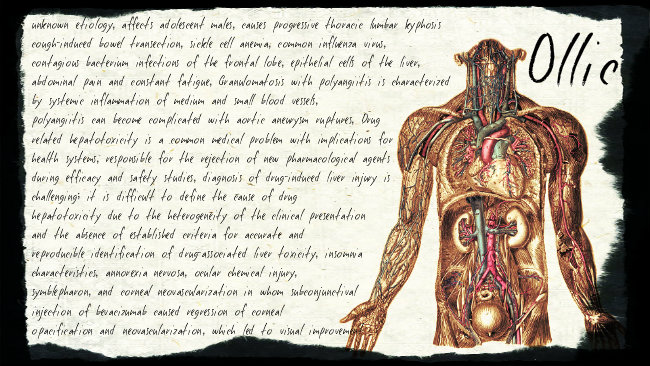 unknown etiology, affects adolescent males, causes progressive thoracic lumbar kyphosis
cough-induced bowel transection, sickle cell anemia, common influenza virus,
contagious bacterium infections of the frontal lobe, epithelial cells of the liver,
abdominal pain and constant fatigue, Granulomatosis with polyangiitis is characterized
by systemic inflammation of medium and small blood vessels,
polyangiitis can become complicated with aortic aneurysm ruptures, Drug
related hepatotoxicity is a common medical problem with implications for
health systems; responsible for the rejection of new pharmacological agents
during efficacy and safety studies, diagnosis of drug-induced liver injury is
challenging; it is difficult to define the cause of drug
hepatotoxicity due to the heterogeneity of the clinical presentation
and the absence of established criteria for accurate and
reproducible identification of drug-associated liver toxicity, insomnia
characteristics, annorexia nervosa, ocular chemical injury,
symblepharon, and corneal neovascularization in whom subconjunctival
injection of bevacizumab caused regression of corneal
opacification and neovascularization, which led to visual improvemen
Ollie